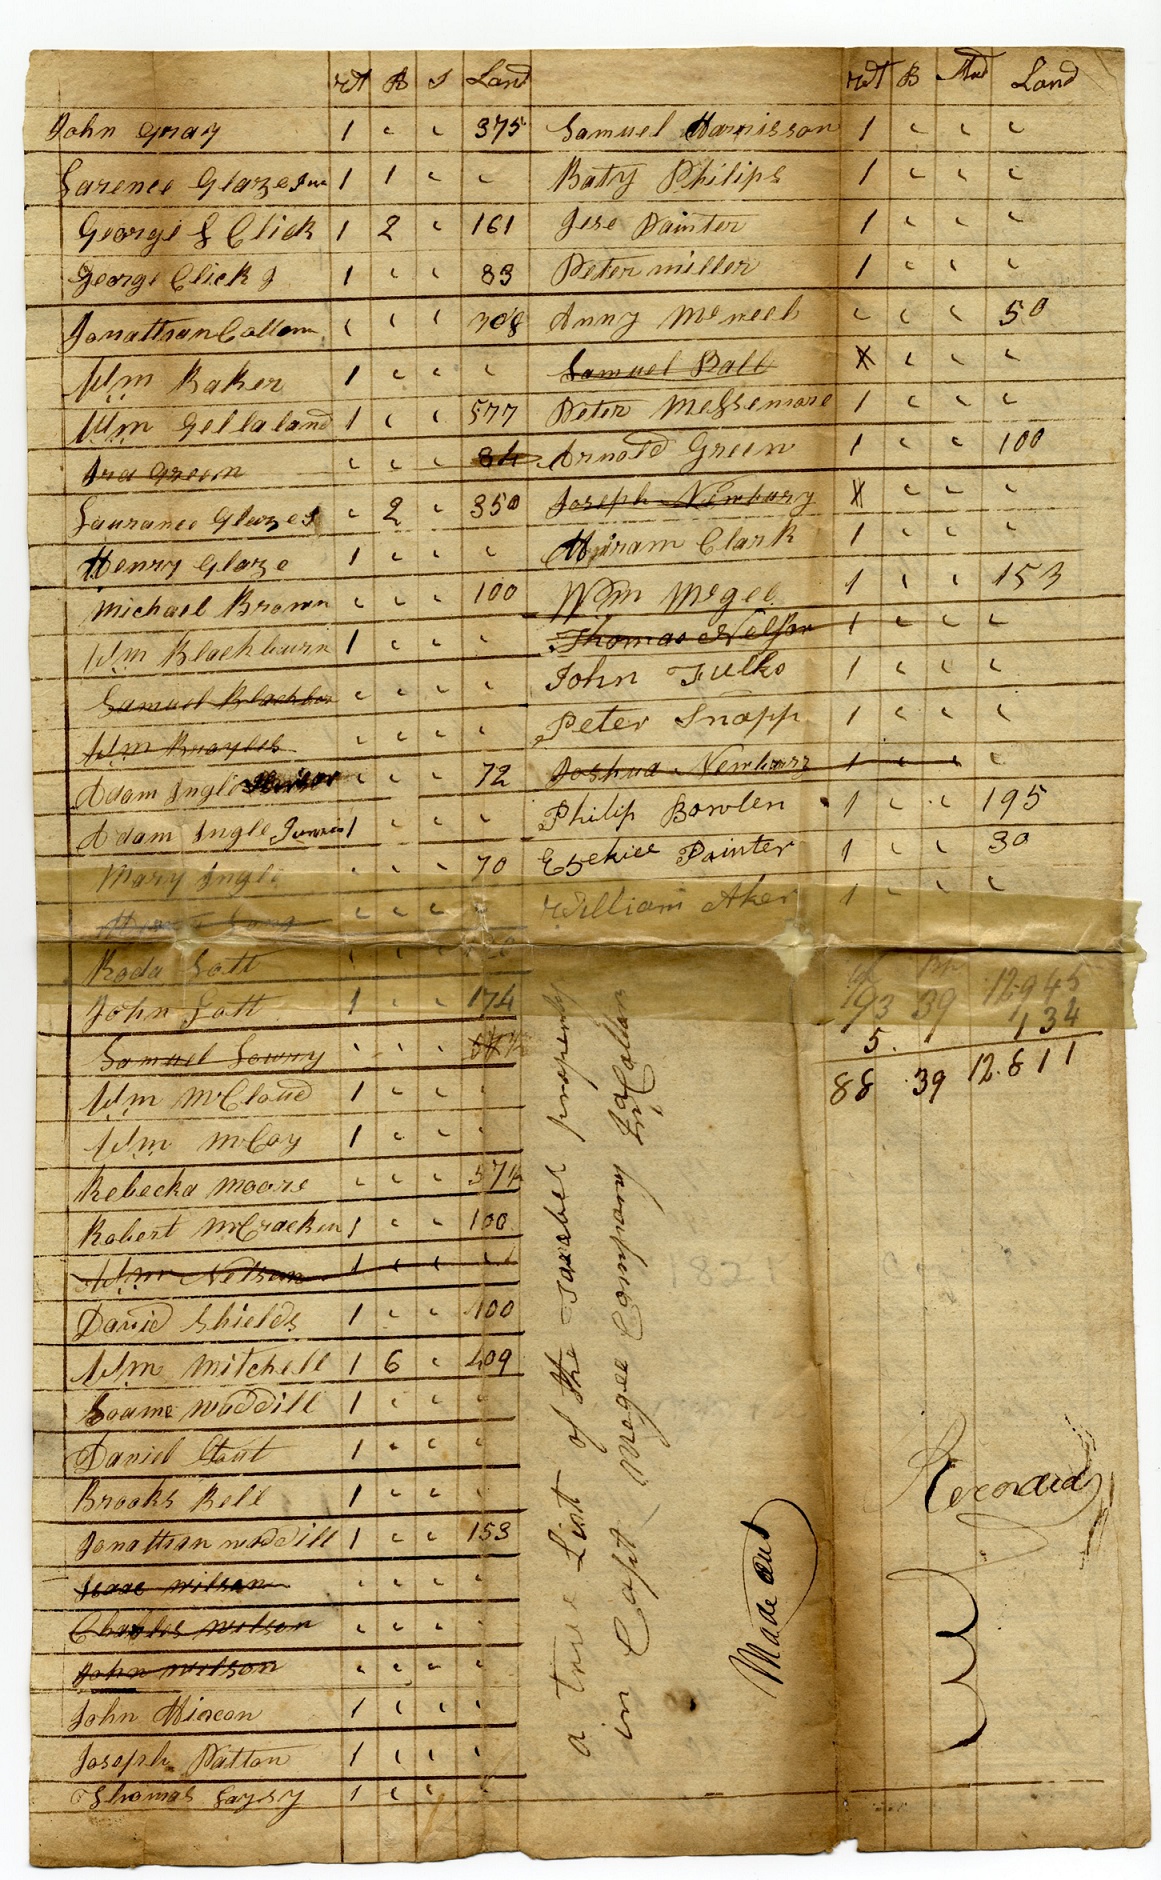 wt B S Land
John Gray 1 " " 375
Larence Glaze Jun 1 1 " "
George G Click 1 2 " 161
George Click J 1 " " 83
Jonathan Collom " " " 308
Wm Baker 1 " " "
Wm Gellaland 1 " " 577
Ira Green " " " 84
Laurance Glaze S " 2 " 350
Henry Glaze 1 " " "
Michael Brown " " " 100
Wm Blackburn 1 " " "
Samuel Blackbur " " " "
Wm Broyles " " " "
Adam Ingle Senior " " " 72
Adam Ingle Junior 1 " " "
Mary Ingle " " " 70
" " " "
Roda Lott " " "
John Lott 1 " " 174
Samuel Lowry " " "
Wm McCloud 1 " " "
Wm McCoy 1 " " "
Rebecka Moore " " " 574
Robert McCrackin 1 " " 100
Wm Nelson 1 " " "
David Shields 1 " " 100
Wm Mitchell 1 6 " 409
Seame Waddill 1 " " "
Daniel Stout 1 " " "
Brooks Bell 1 " " "
Jonathan Waddill 1 " " 153
Isaac Wilson " " " "
Charles Wilson " " " "
John Wilson " " " "
John Hixon 1 " " "
Joseph Patton 1 " " "
Thomas 1 " " "
wt B Stud Land
Samuel Harrisson 1 " " "
Baty Philips 1 " " "
Jese Painter 1 " " "
Peter Miller 1 " " "
Anny McNeel " " " 50
Samuel Ball X " " "
Peter Messemore 1 " " "
Arnold Green 1 " " 100
Joseph Newbury X " " "
Hiram Clark 1 " " "
Wm Mcgee 1 " " 153
Thomas Nelson 1 " " "
John Fulks 1 " " "
Peter Snapp 1 " " "
Joshua Newbury 1 " " "
Philip Bowlen 1 " " 195
Ezekiel Painter 1 " " 30
William Aker 1 " " "
93 39 12.945
5 134
88 39 12.811
a true List of the Taxabel property
in Capt Magee Company
Made out
Recorded